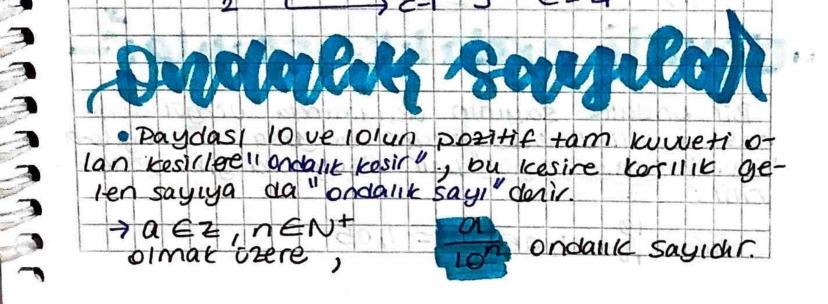 ondalık sayılar
• Paydası 10 ve 10'un pozitif tam kuvveti o-
lan kesirlere "ondalık kesir", bu kesire karşılık ge-
len sayıya da "ondalık sayı" denir.
→ a ∈ Z, n ∈ N⁺
olmak üzere, a/10ⁿ ondalık sayıdır.